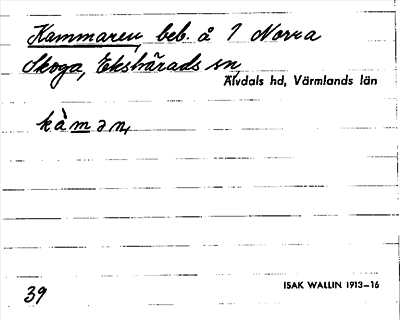 Kammaren, beb. å 1 Norra
Skoga, Ekshärads sn,
Älvdals hd, Värmlands län
kàmən,
ISAK WALLIN 1913–16
39